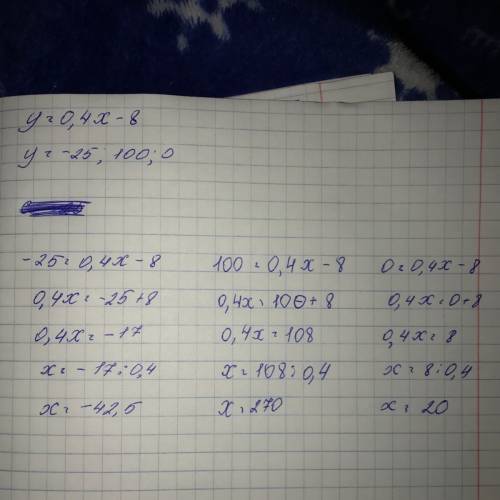 y = 0,4x - 8
y = -25; 100; 0
-25 = 0,4x - 8 100 = 0,4x - 8 0 = 0,4x - 8
0,4x = -25 + 8 0,4x = 100 + 8 0,4x = 0 + 8
0,4x = -17 0,4x = 108 0,4x = 8
x = -17 : 0,4 x = 108 : 0,4 x = 8 : 0,4
x = -42,5 x = 270 x = 20